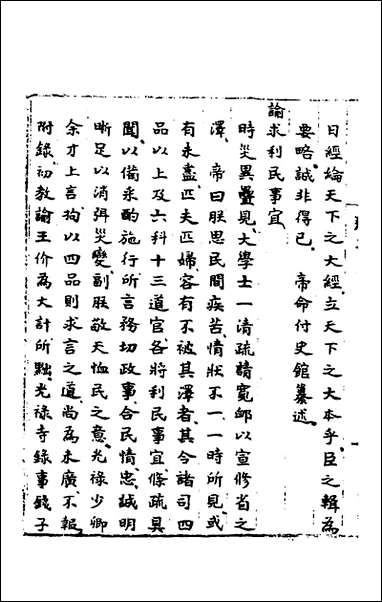 曰經綸天下之大經立天下之大本乎臣之輯為
要略誠非得已　帝命付史館纂述
諭求利民事宜
時災異疊見大學士一清疏請寬郇以宣修省之
澤　帝曰朕思民間疾苦情狀不一一時所見或
有未盡匹夫匹婦容有不被其澤者其今諸司四
品以上及六科十三道官各將利民事宜條疏具
聞以備采酌施行所言務切政事合民情忠誠明
晰足以消弭災變副朕敬天恤民之意光祿少卿
余才上言拘以四品則求言之道尚為未廣不報
附錄初教諭王价為大計所黜光祿寺錄事錢子